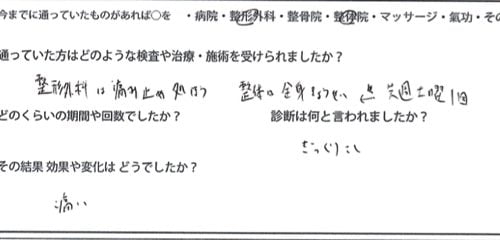 今までに通っていたものがあれば○を ・病院・整形外科・整骨院・整体院・マッサージ・氣功・その
通っていた方はどのような検査や治療・施術を受けられましたか?
整形外科は痛み止め処ほう 整体は全身きょうせい 毎週土曜1回
どのくらいの期間や回数でしたか? 診断は何と言われましたか?
ぎっくりこし
その結果 効果や変化は どうでしたか?
痛い